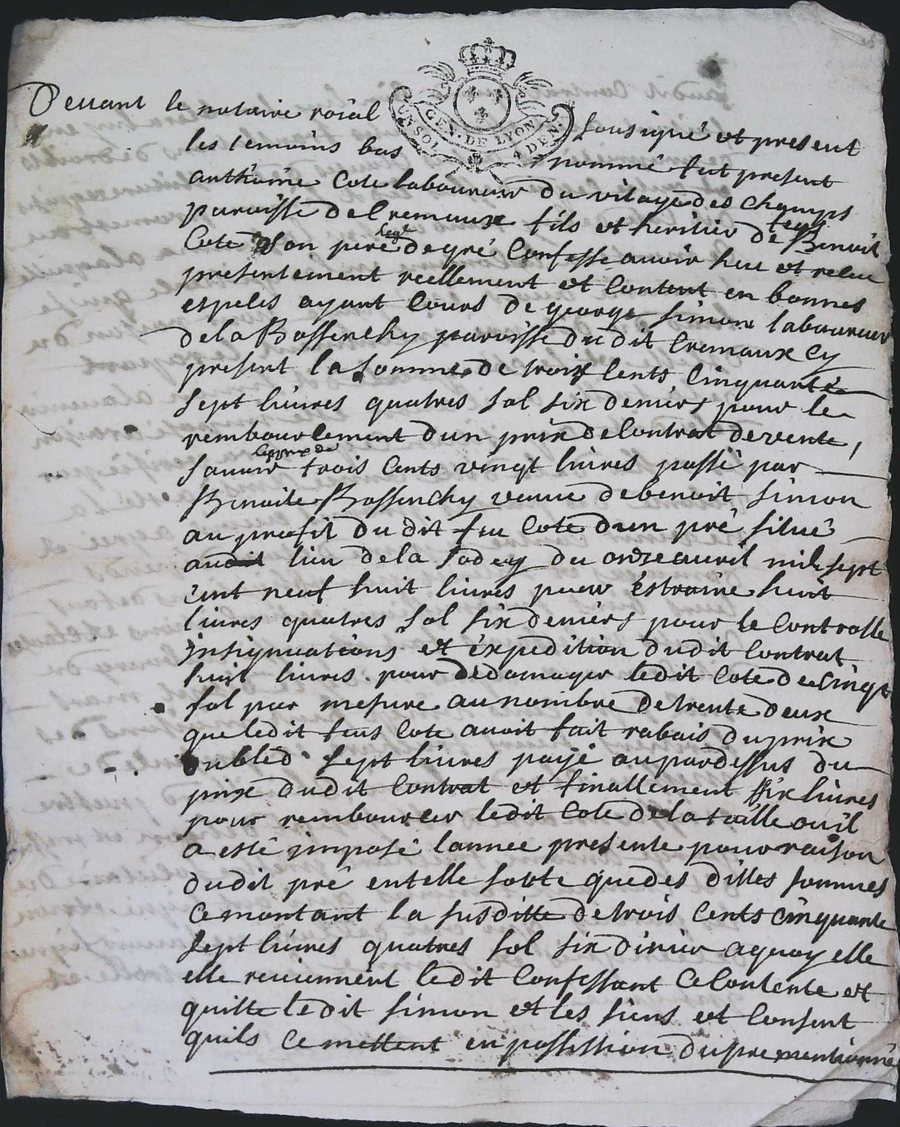 GEN. DE LYON
UN SOL 4 DEN.
Devant le notaire roial sousigné et present
les temoins bas nommé fut present
anthoine Cote laboureur du vilage des Champs
paroisse de Cremaux fils et heritier de Benoit
Cote son pere de gré Confesse avoir heu et relue
presentement reellement et Content en bonnes
espeses ayant Cours de george Simon laboureur
de la Bassenchy paroisse du dit Cremaux Cy
present la somme de troix Cents Cinquante
sept livres quatres sol six deniers pour le
remboursement dun prix de Contrat de vente,
savoir trois Cents vingt livres passé par
Benoite Bassenchy veuve de benoit Simon
au profit du dit feu Cote dun pré situé
audit lieu de la du onze avril mil sept
cent neuf huit livres pour estraine huit
livres quatres sol six deniers pour le Controlle
insignuations et éxpedition dudit Contrat
huit livres pour dedomager ledit Cote de Cinqt
sol par mesure au nombre de trente deux
que ledit feus Cote avoit fait rabais du prix
du bled sept livres payé aupardessus du
prix dudit Contrat et finallement six livres
pour rembourcer ledit Cote de la taille ou il
a esté imposé lannee presente pour raison
dudit pré entelle sorte que des dittes sommes
Ce montant la susditte de trois Cents Cinquante
sept livres quatres sol six dinier a quoy elle
elle reviennent ledit Confessant Ce Contente et
quitte ledit Simon et les siens et Consent
quils Ce mettent en possession du pre mentionné